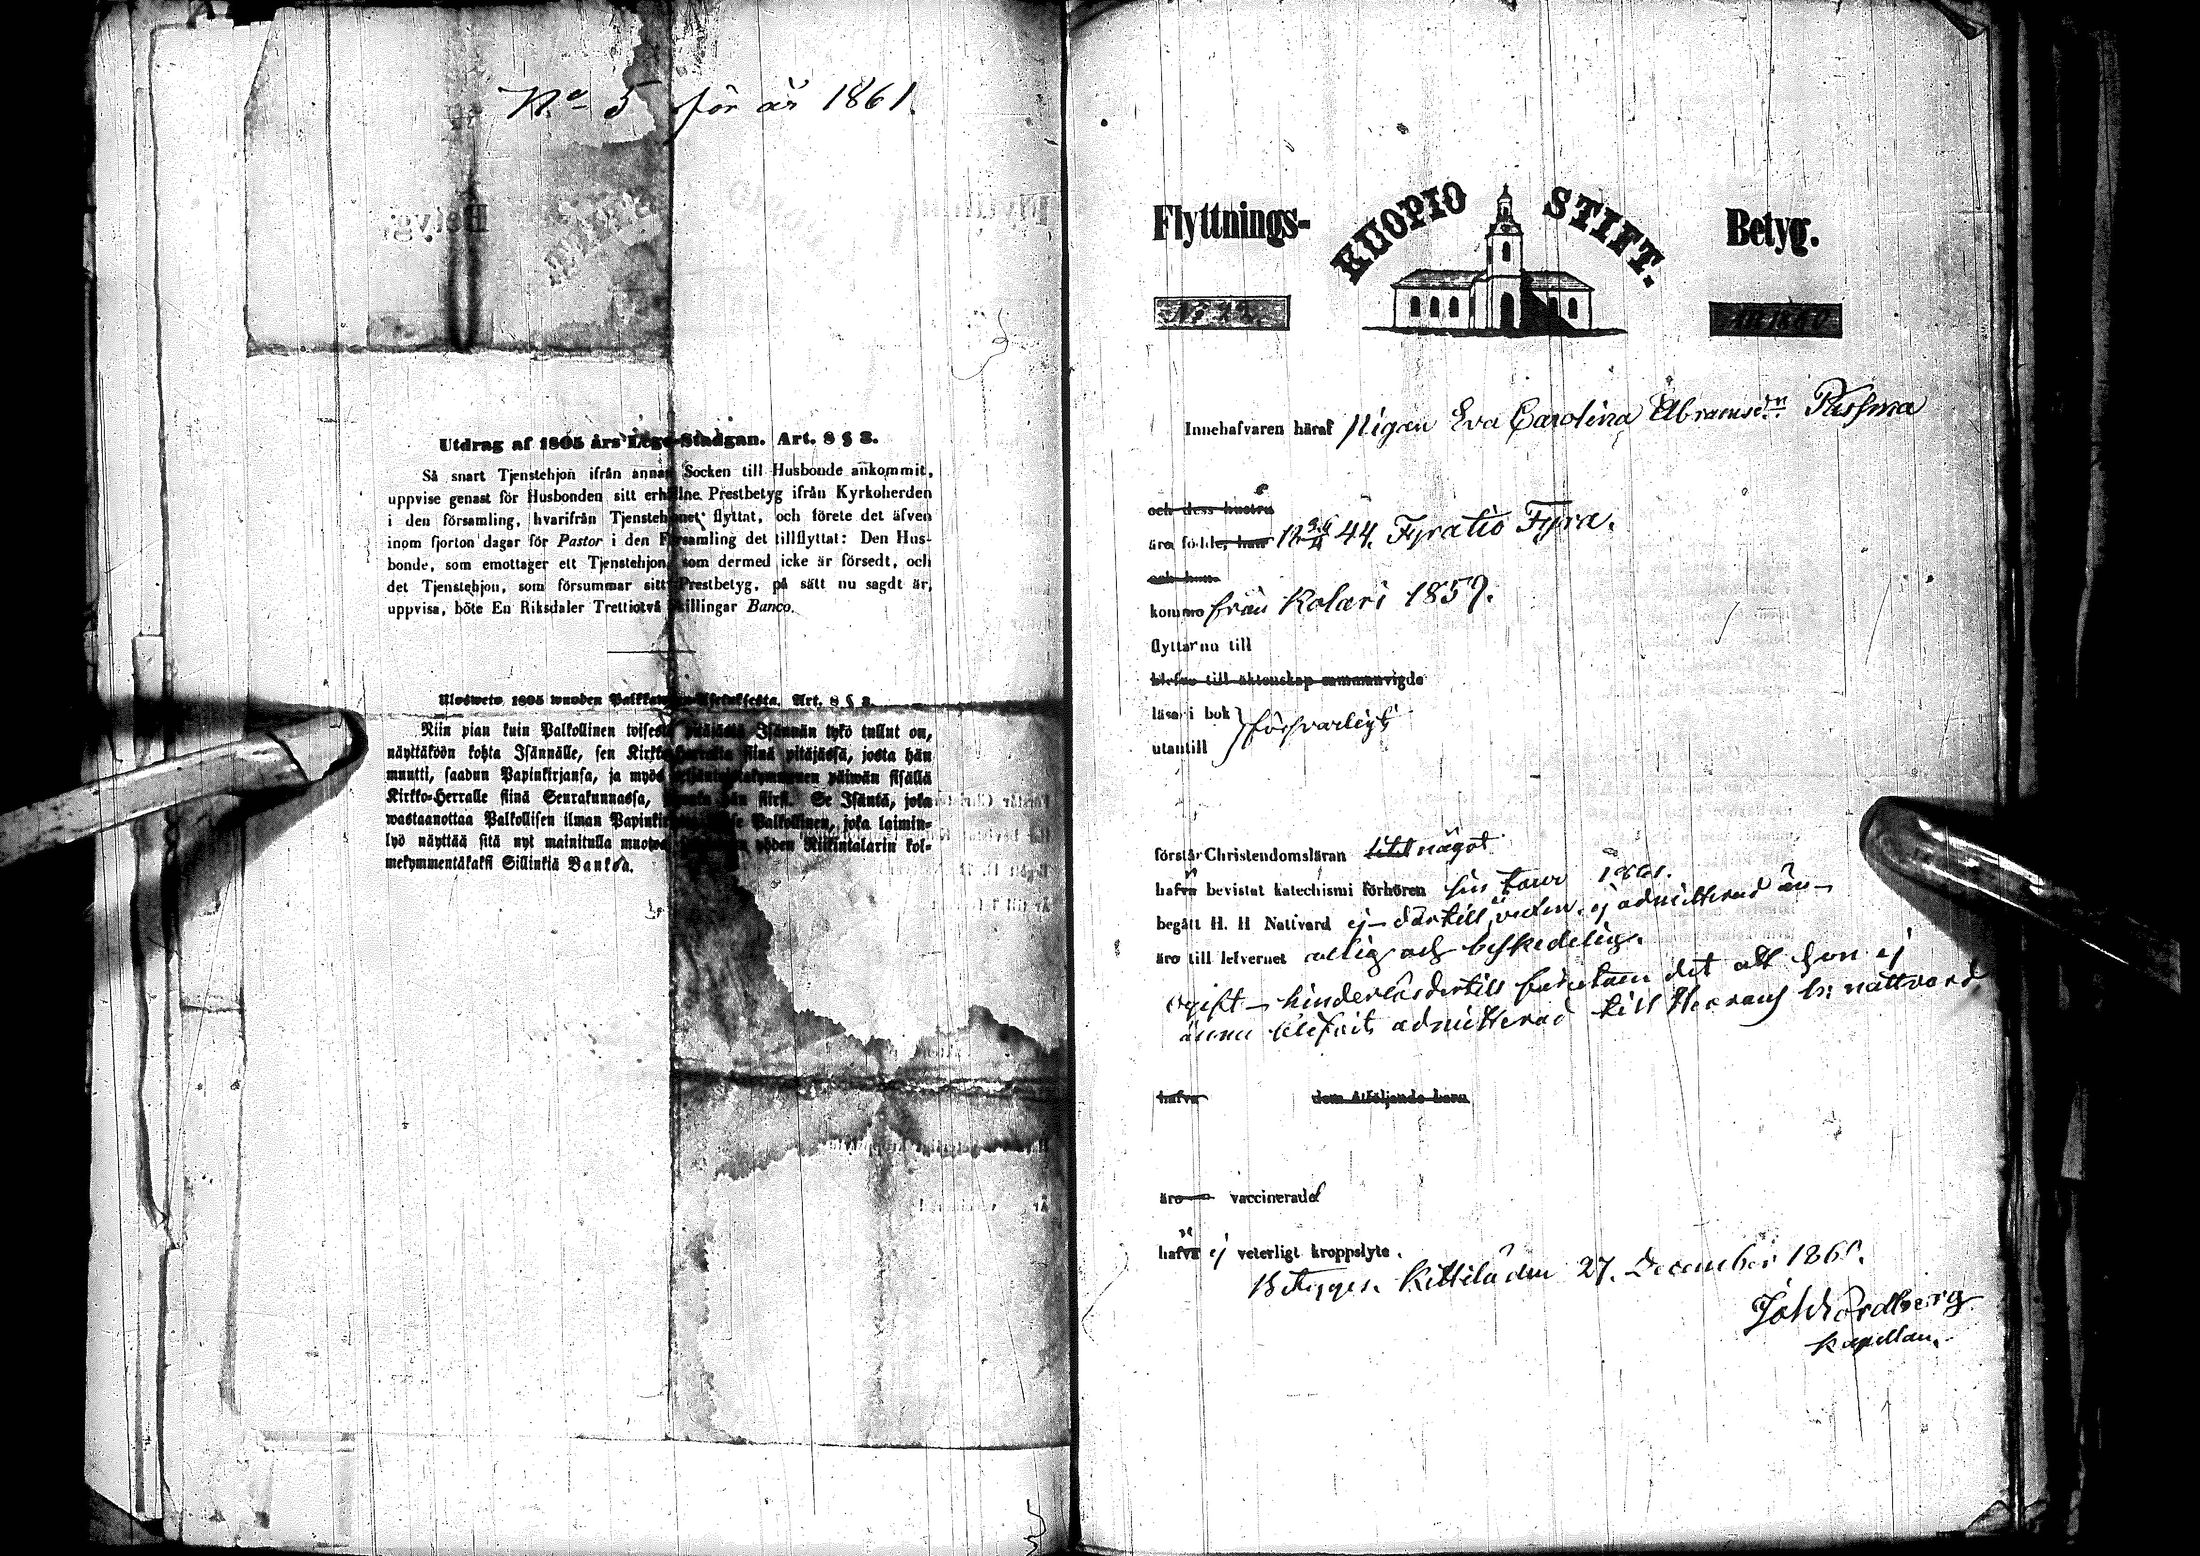 No 5 för år 1861.
Utdrag af 1805 års Lego-Stadgan. Art. 8 § 3.
Så snart Tjenstehjon ifrån annan Socken till Husbonde ankommit,
uppvise genast för Husbonden sitt erhållne Prestbetyg ifrån Kyrkoherden
i den församling, hvarifrån Tjenstehjonet flyttat, och förete det äfven
inom fjorton dagar för Pastor i den Församling det tillflyttat: Den Hus-
bonde, som emottager ett Tjenstehjon, som dermed icke är försedt, och
det Tjenstehjon, som försummar sitt Prestbetyg, på sätt nu sagdt är,
uppvisa, böte En Riksdaler Trettiotvå Skillingar Banco.
Ulosweto 1805 wuoden Palkka Art. 8 § 3.
Niin pian kuin Palkollinen toisesta pitäjästä Isännän tykö tullut on,
näyttäköön kohta Isännälle, sen Kirkko-Herralta siinä pitäjässä, josta hän
muutti, saadun Papinkirjansa, ja myös päiwän sisällä
Kirkko-Herralle siinä Seurakunnassa, hän siirsi. Se Isäntä, joka
wastaanottaa Palkollisen ilman Palkollinen, joka laimin-
lyö näyttää sitä nyt mainitulla muotoa yhden Riikintalarin kol-
mekymmentäkaksi Sillinkiä Bankoa.
Flyttnings- KUOPIO STIFT. Betyg.
Innehafvaren häraf Pigan Eva Carolina Abramsdn
och dess hustru
äro födde, han 12 44. Fyratio Fyra.
och hon
kommo från Kolari 1859.
flyttar nu till
blefvo till äktenskap sammanvigde
läser i bok
utantill försvarligt
förstår Christendomsläran något
hafva bevistat katechismi förhören
begått H. H Nattvard ej därtill ej admitterad än
äro till lefvernet och beskedelig.
ogift det att hon ej
ännu blifvit admitterad till Herrans h: nattvard
hafva dem åtföljande barn
äro vaccinerade
hafva ej veterligt kroppslyte.
Betygges. Kittilä den 27. December 1860.
Joh Nordberg
kapellan.